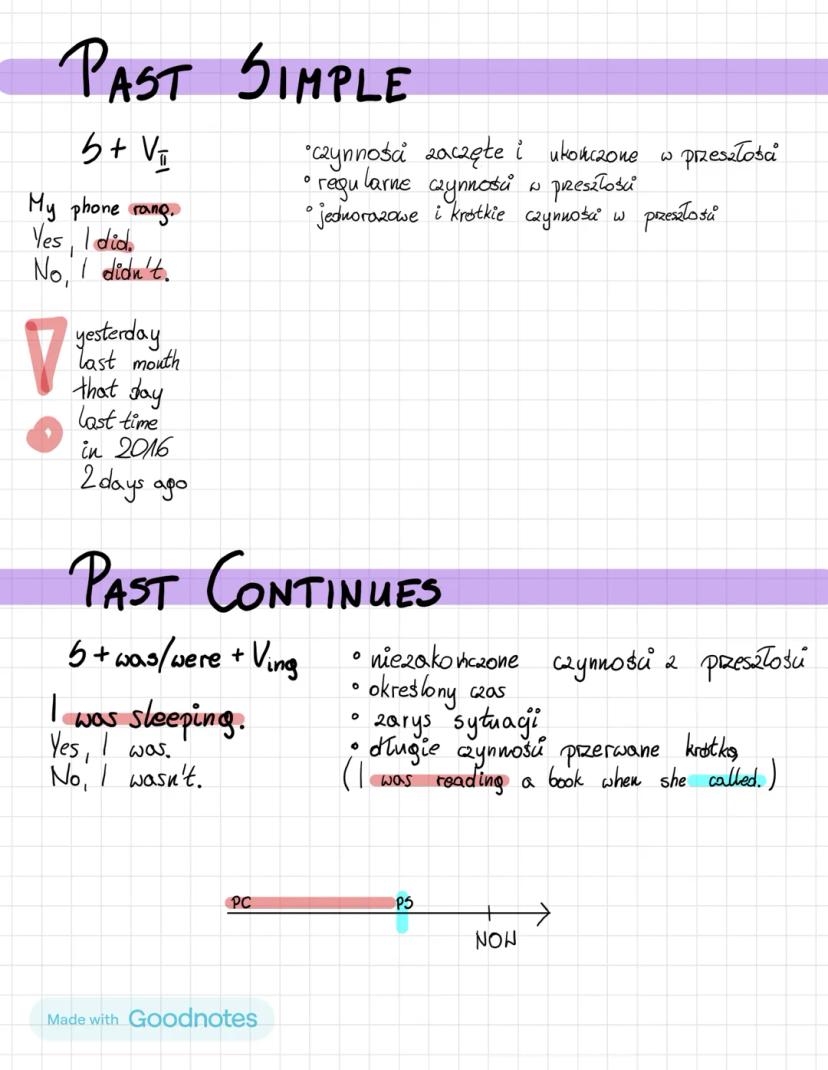 PAST SIMPLE
S + V II
My phone rang.
Yes, I did.
No, I didn't.
• czynności zaczęte i ukończone w przeszłości
• regularne czynności w przeszłości
• jednorazowe i krótkie czynności w przeszłości
!
yesterday
last month
that day
last time
in 2016
2 days ago
PAST CONTINUES
S + was/were + Ving
I was sleeping.
Yes, I was.
No, I wasn't.
• niezakończone czynności z przeszłości
• określony czas
• zarys sytuacji
• długie czynności przerwane krótką
(I was reading a book when she called.)
PC PS
NOW
Made with Goodnotes